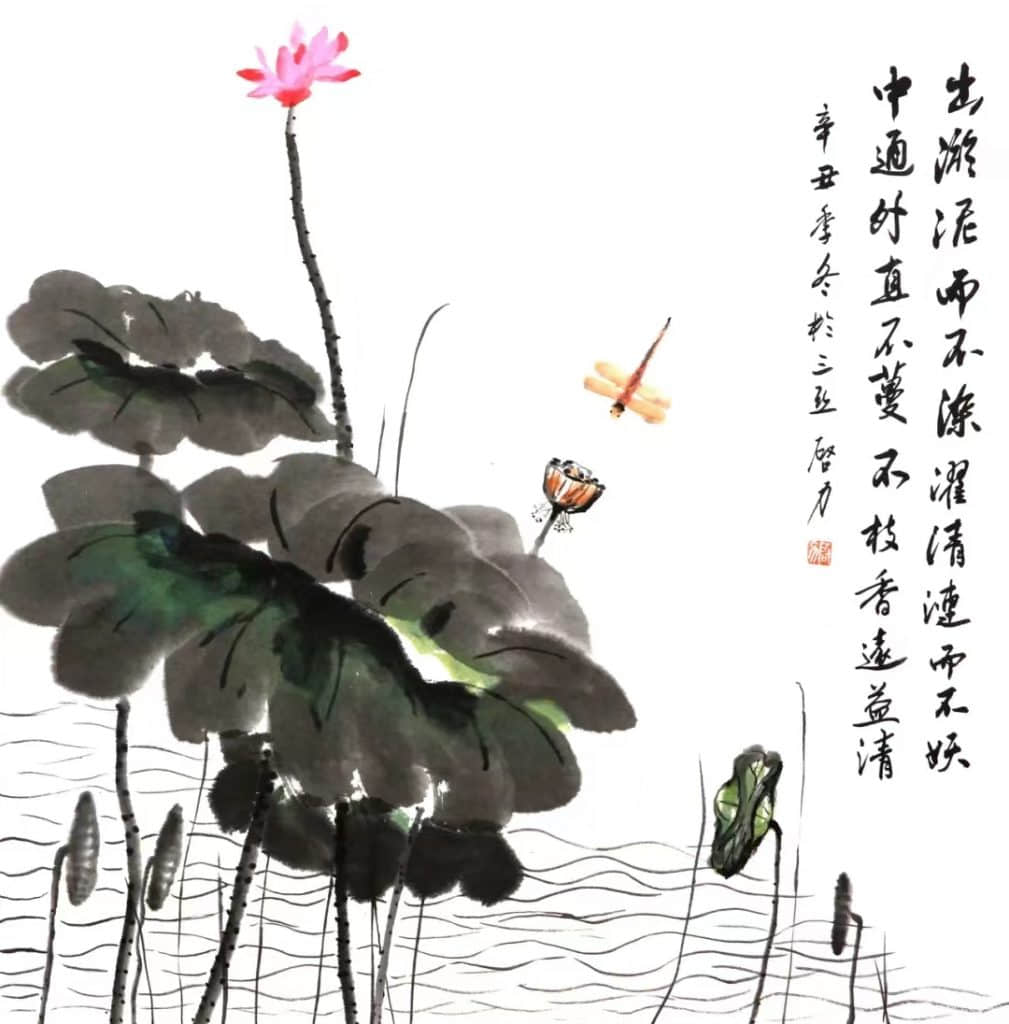 出淤泥而不染濯清漣而不妖
中通外直不蔓不枝香遠益清
辛丑季冬於三亞啓力